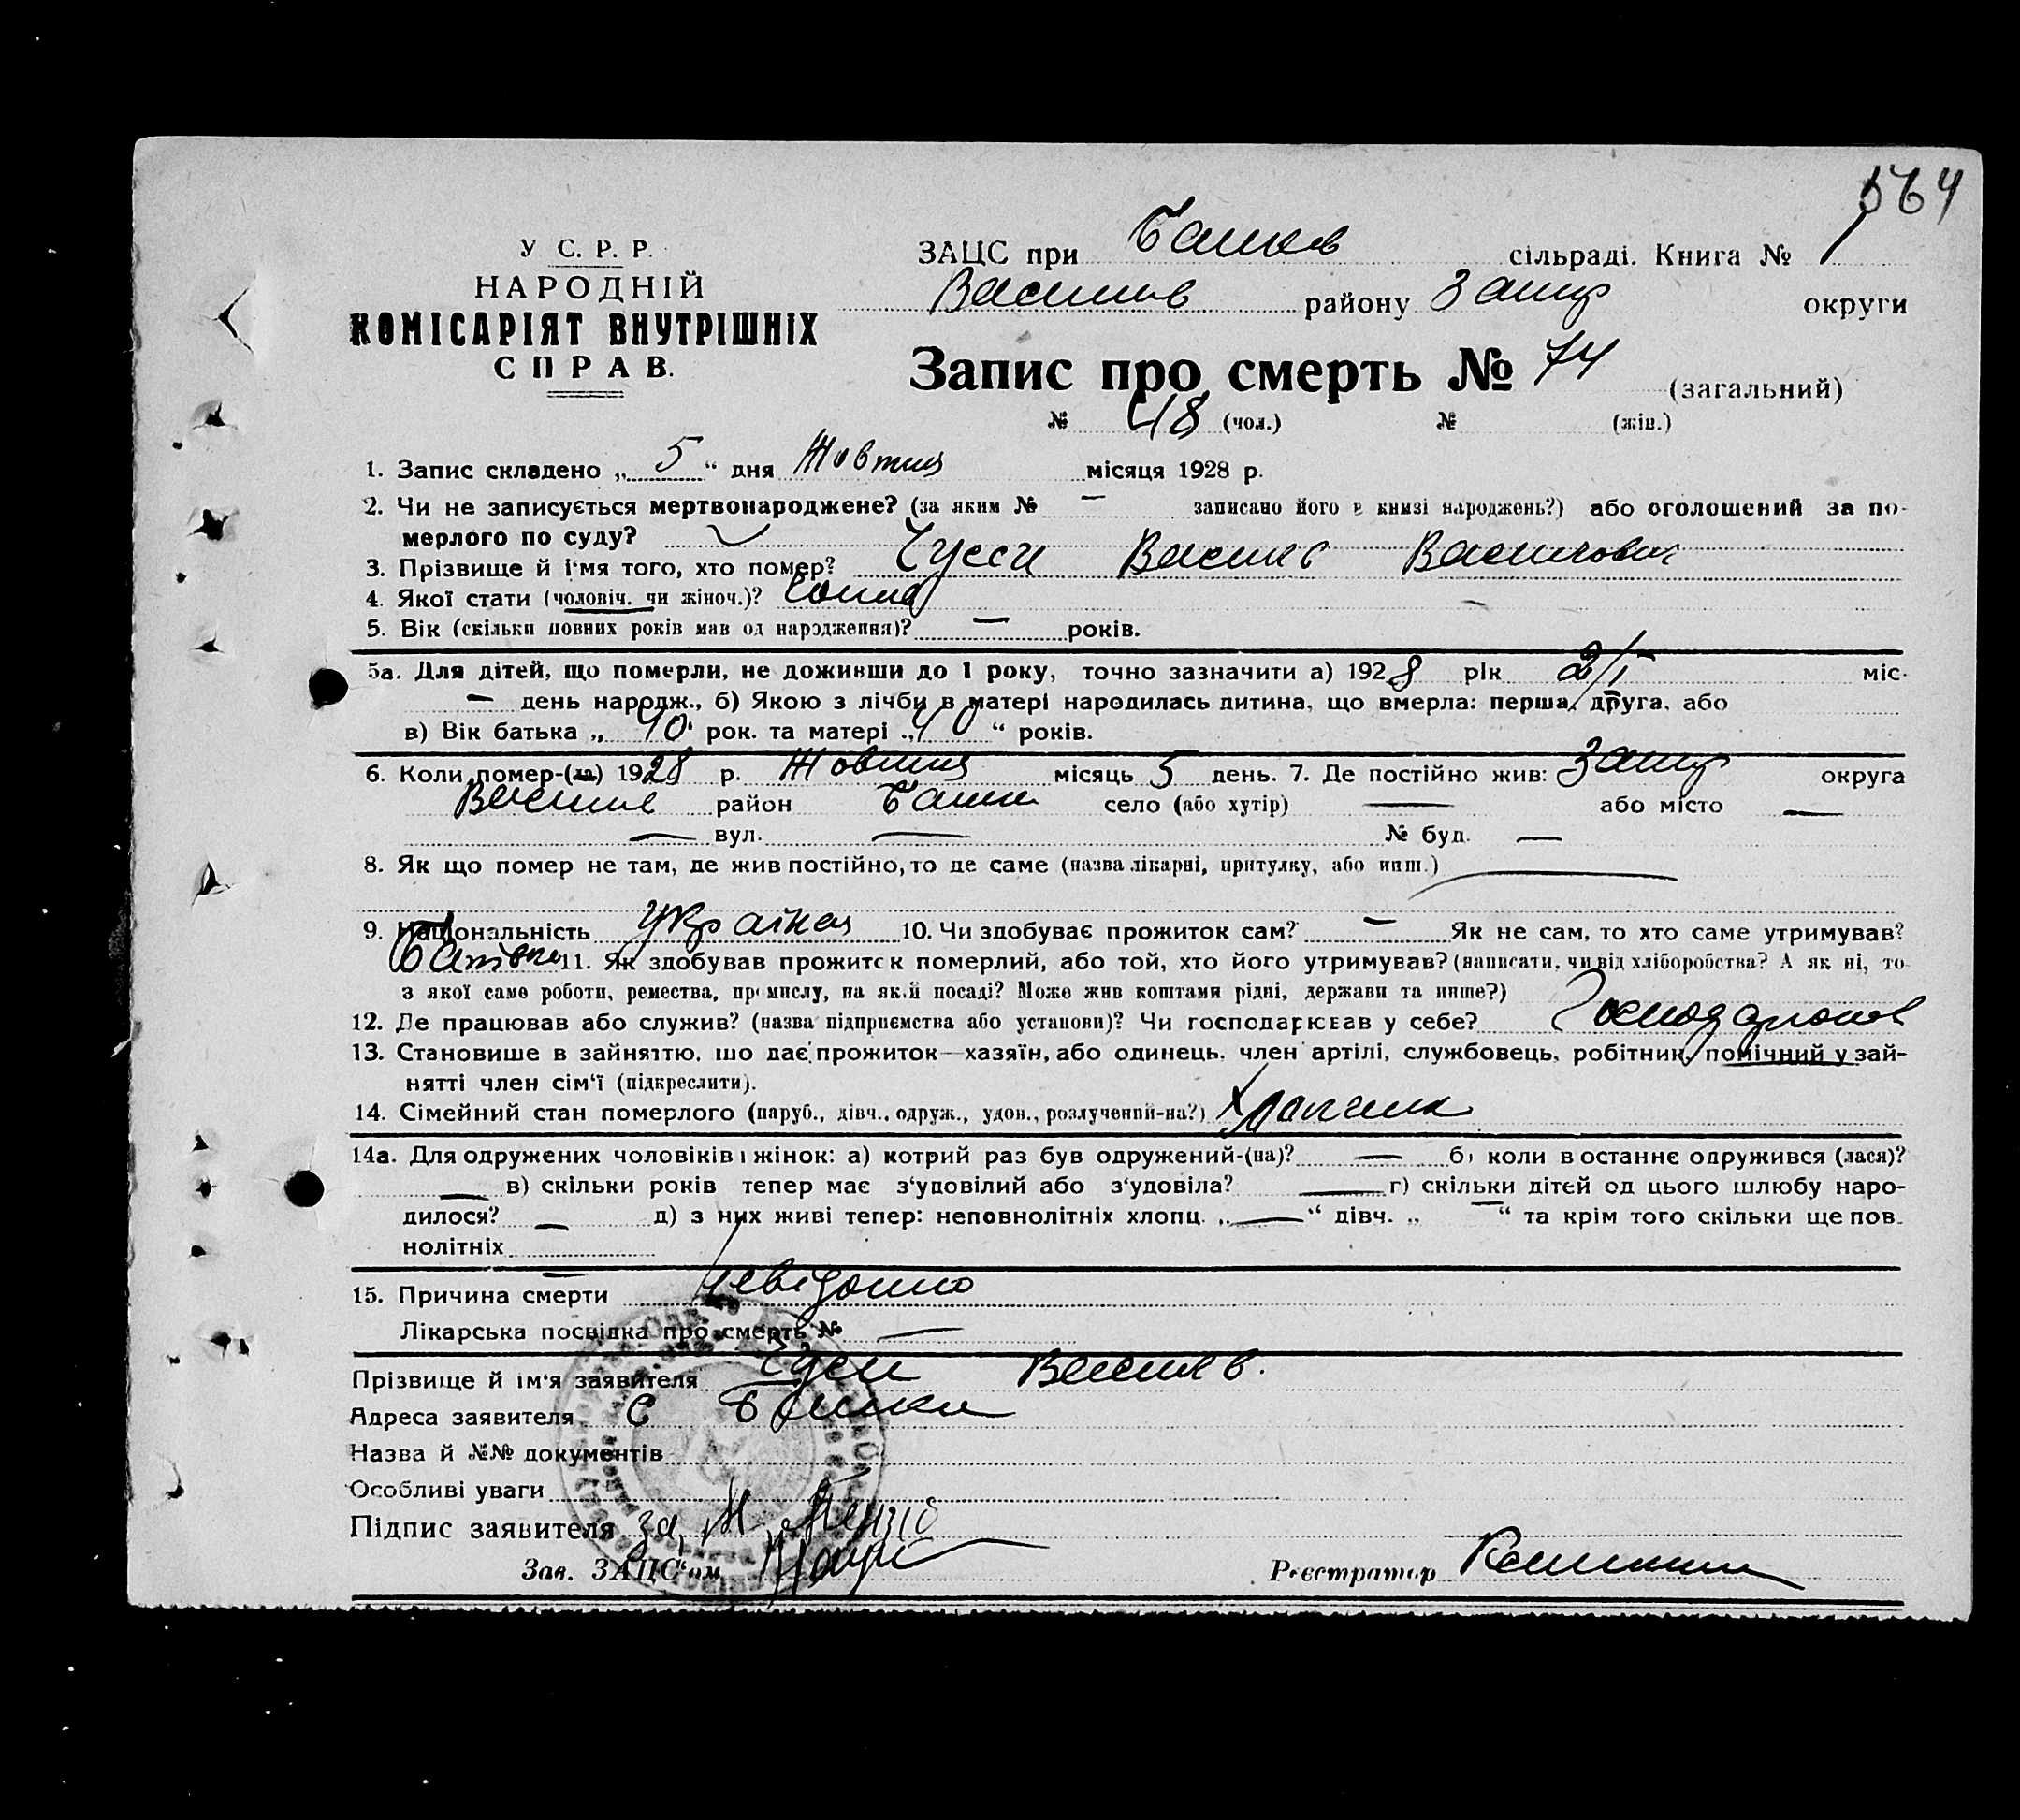 564
У С. Р. Р.
НАРОДНІЙ
КОМІСАРІЯТ ВНУТРІШНІХ
СПРАВ.
ЗАЦС при сільраді. Книга № 1
Василів району Запор округи
Запис про смерть № 74 (загальний)
№ 48 (чол.) № (жін.)
1. Запис складено „ 5 “ дня Жовтня місяця 1928 р.
2. Чи не записується мертвонароджене? (за яким № — записано його в книзі народжень?) або оголошений за по-
мерлого по суду?
3. Прізвище й і'мя того, хто помер? Василь Васильович
4. Якої стати (чоловіч. чи жіноч.)?
5. Вік (скільки повних років мав од народження)? — років.
5а. Для дітей, що померли, не доживши до 1 року, точно зазначити а) 1928 рік міс.
— день народж., б) Якою з лічби в матері народилась дитина, що вмерла: перша, друга, або
в) Вік батька „ 40 “ рок. та матері „ 40 “ років.
6. Коли помер-(ла) 1928 р. Жовтня місяць 5 день. 7. Де постійно жив: Запор округа
Василів район село (або хутір) — або місто —
— вул. — № буд. —
8. Як що помер не там, де жив постійно, то де саме (назва лікарні, притулку, або инш.) —
9. Національність Україна 10. Чи здобуває прожиток сам? — Як не сам, то хто саме утримував?
11. Як здобував прожиток померлий, або той, хто його утримував? (написати, чи від хліборобства? А як ні, то
з якої саме роботи, ремества, промислу, на якій посаді? Може жив коштами рідні, держави та инше?)
12. Де працював або служив? (назва підприємства або установи)? Чи господарював у себе?
13. Становище в зайняттю, що дає прожиток—хазяїн, або одинець, член артілі, службовець, робітник, помічний у зай-
нятті член сім'ї (підкреслити).
14. Сімейний стан померлого (паруб., дівч., одруж., удов., розлучений-на?)
14а. Для одружених чоловіків і жінок: а) котрий раз був одружений-(на)? — б) коли в останнє одружився (лася)?
— в) скільки років тепер має з'уповілий або з'удовіла? — г) скільки дітей од цього шлюбу наро-
дилося? — д) з них живі тепер: неповнолітніх хлопц. „ — “ дівч. „ — “ та крім того скільки ще пов-
нолітніх —
15. Причина смерти невідомо
Лікарська посвідка про смерть № —
Прізвище й ім'я заявителя Василь
Адреса заявителя С
Назва й №№ документів
Особливі уваги
Підпис заявителя за
Зав. ЗАЦС'ом Реєстратор